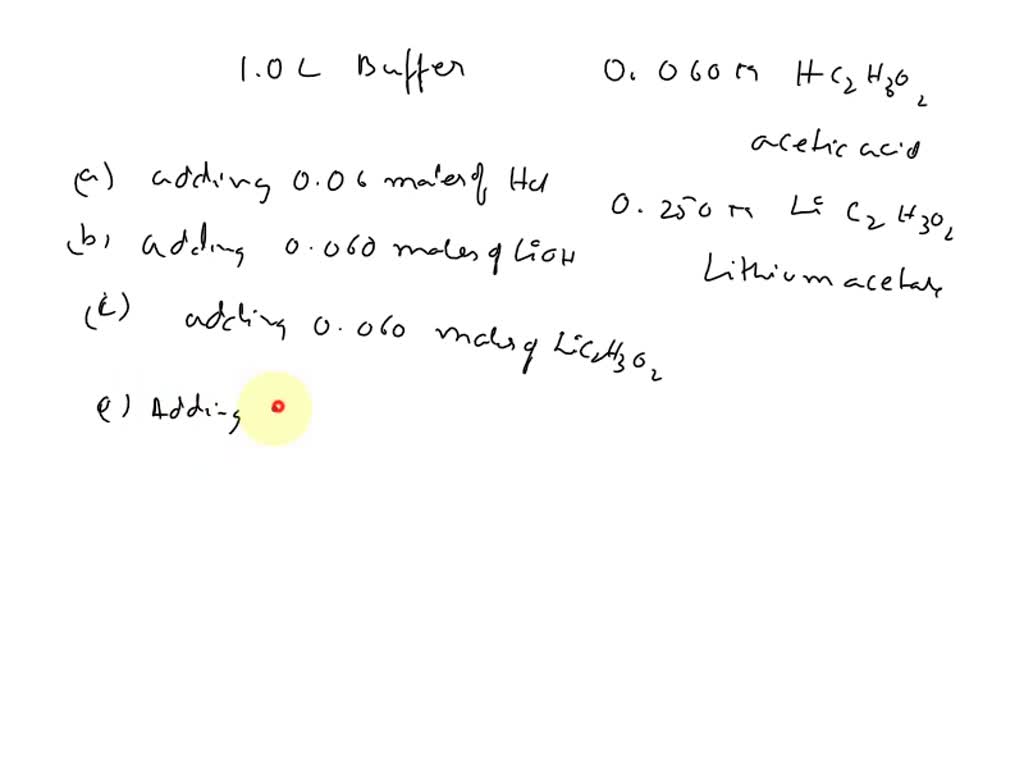 1.0 L Buffer
0.060 M HC₂H₃O₂
acetic acid
(a) adding 0.06 moles of HCl
0.250 M Li C₂H₃O₂
(b) adding 0.060 moles of LiOH
Lithium acetate
(c) adding 0.060 moles of LiC₂H₃O₂
e) Adding